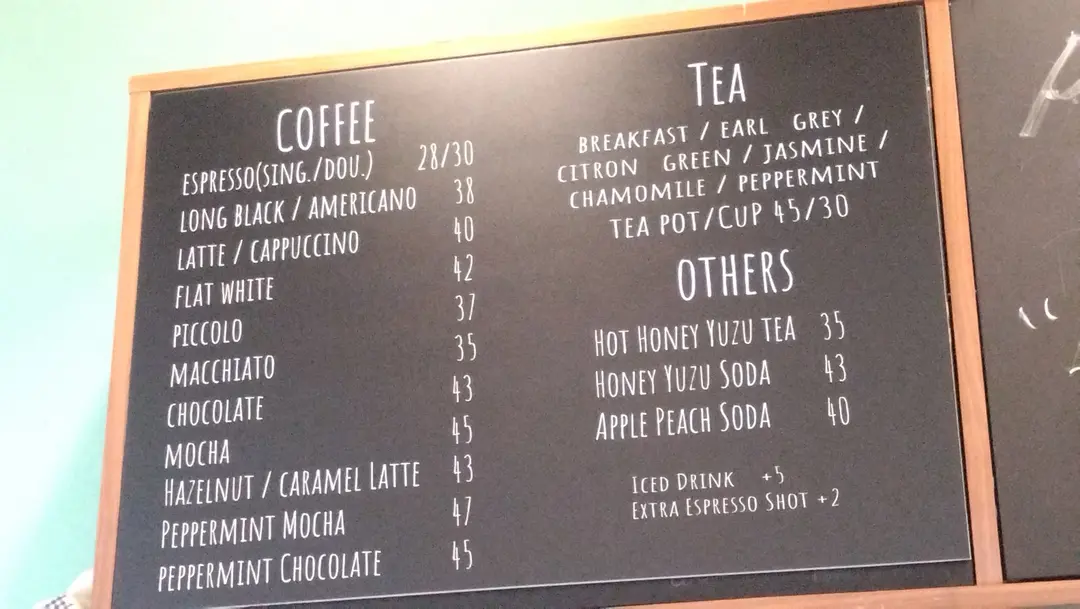 COFFEE
ESPRESSO(SING./DOU.) 28/30
LONG BLACK / AMERICANO 38
LATTE / CAPPUCCINO 40
FLAT WHITE 42
PICCOLO 37
MACCHIATO 35
CHOCOLATE 43
MOCHA 45
HAZELNUT / CARAMEL LATTE 43
PEPPERMINT MOCHA 47
PEPPERMINT CHOCOLATE 45
TEA
BREAKFAST / EARL GREY /
CITRON GREEN / JASMINE /
CHAMOMILE / PEPPERMINT
TEA POT/CUP 45/30
OTHERS
HOT HONEY YUZU TEA 35
HONEY YUZU SODA 43
APPLE PEACH SODA 40
ICED DRINK +5
EXTRA ESPRESSO SHOT +2